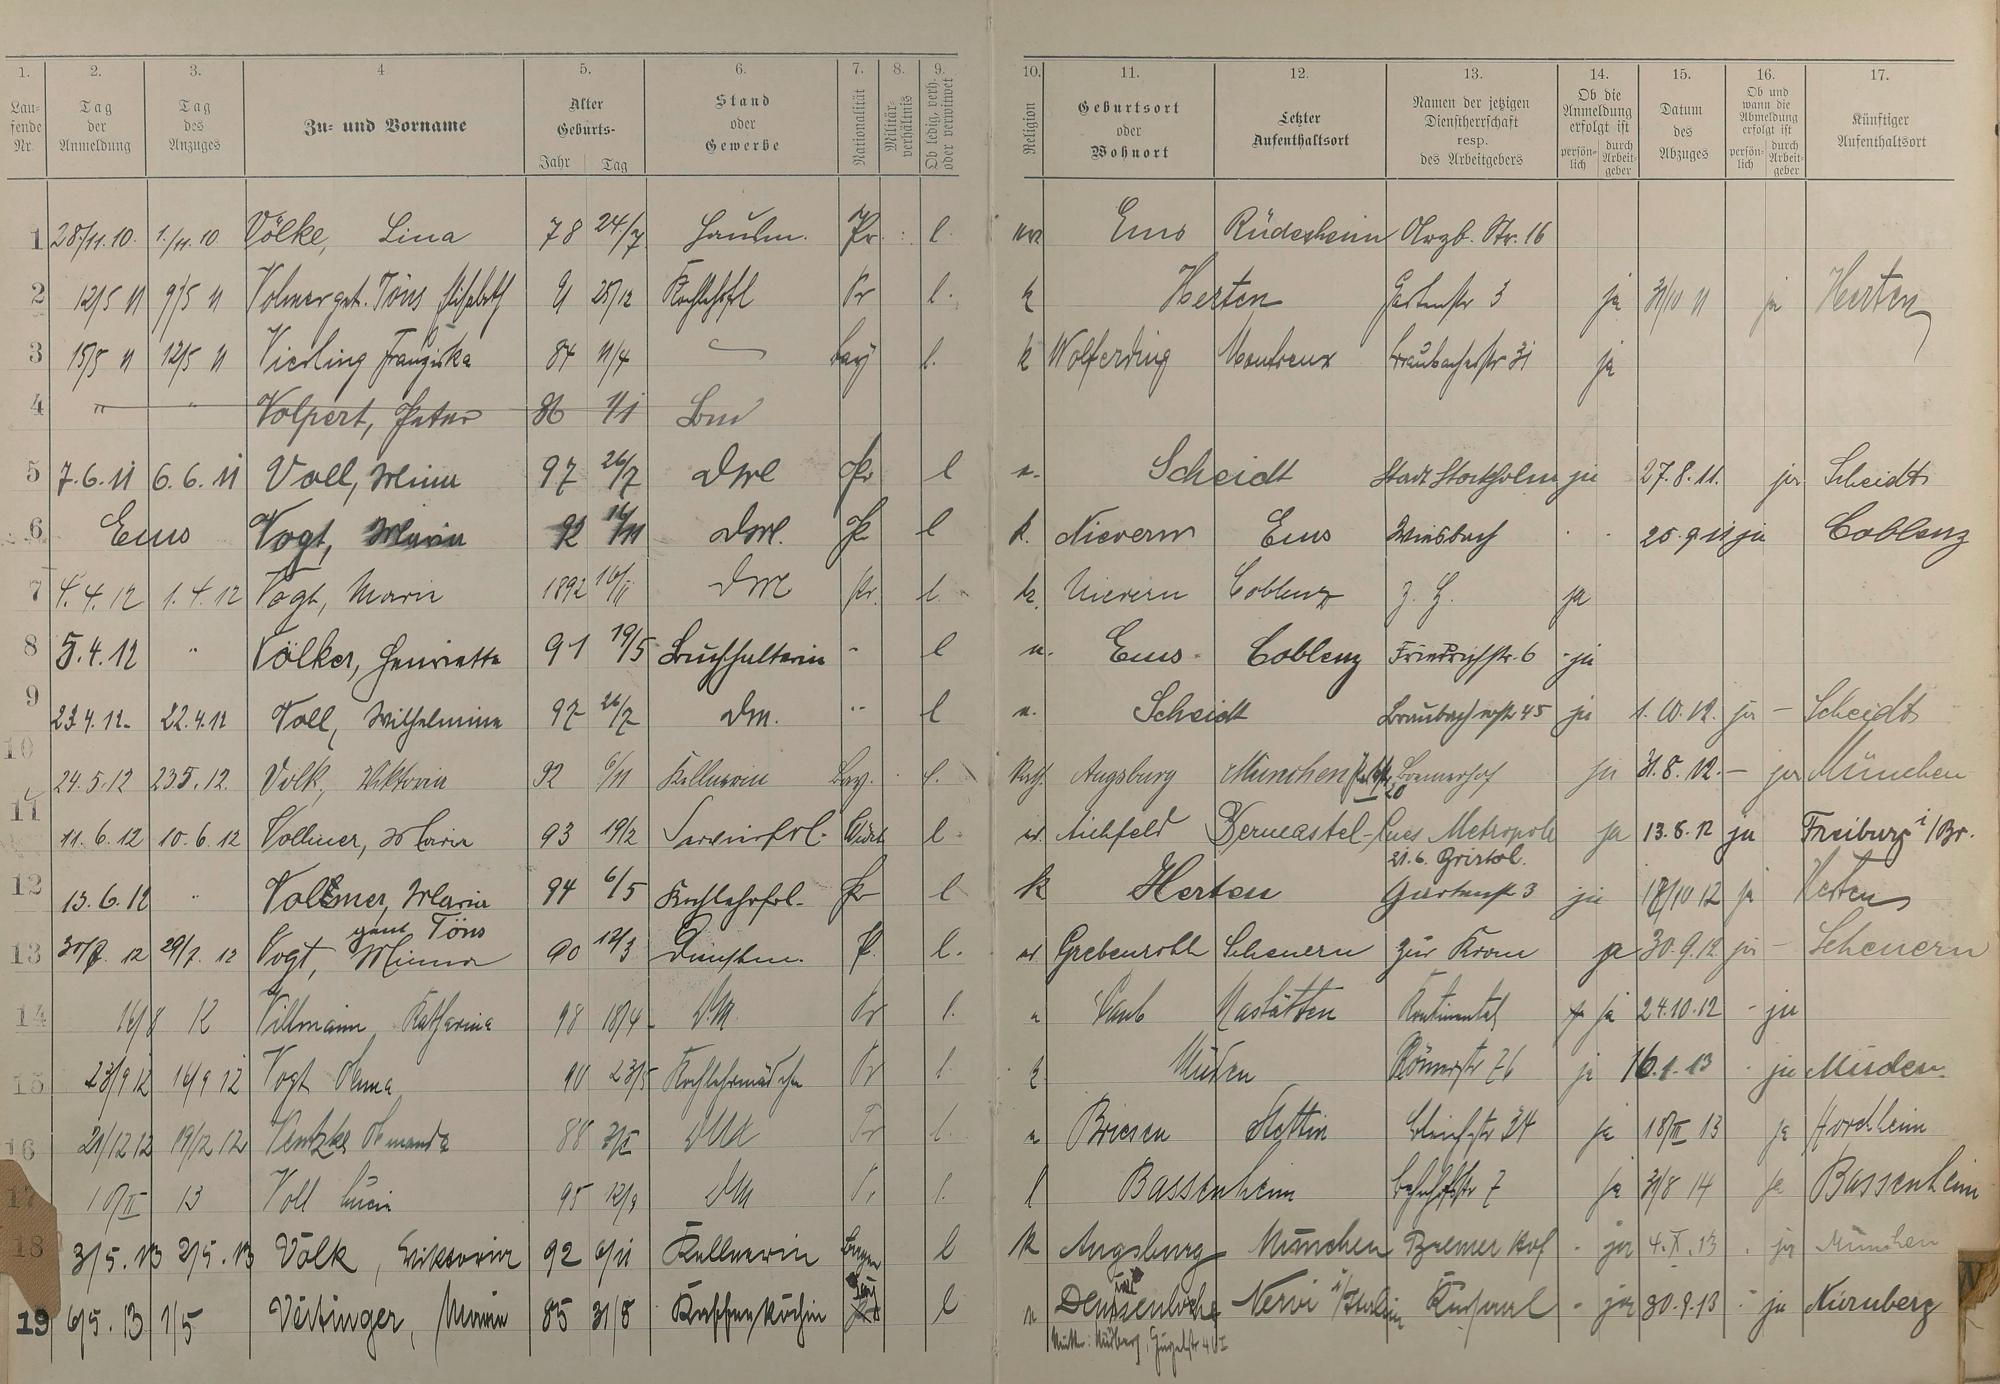 1. 2. 3. 4 5. 6. 7. 8. 9. 10. 11. 12. 13. 14. 15. 16. 17.
Lau-
fende
Nr.
Tag
der
Anmeldung
Tag
des
Anzuges
Zu- und Vorname
Alter
Geburts-
Jahr Tag
Stand
oder
Gewerbe
Nationalität
Militär-
verhältnis
Ob ledig, verh.
oder verwitwet
Religion
Geburtsort
oder
Wohnort
Letzter
Aufenthaltsort
Namen der jetzigen
Dienstherrschaft
resp.
des Arbeitgebers
Ob die
Anmeldung
erfolgt ist
persön-
lich
durch
Arbeit-
geber
Datum
des
Abzuges
Ob und
wann die
Abmeldung
erfolgt ist
persön-
lich
durch
Arbeit-
geber
Künftiger
Aufenthaltsort
1 28./11.10. 1./11.10 Völke, Lina 78 24./7 Hausm. Pr. l. Ems Rüdesheim Str. 16
2 12/5 11 9/5 11 Volmer gnt. Töns Elisabeth 91 25/12 Kochlehrfrl Pr l. k Herten Gartenstr 3 ja 31/10 11 ja Herten
3 15/5 11 12/5 11 Vierling Franziska 84 11/4 Bay l. k Wolferding Montreux Braubacherstr 31 ja
4 " " Volpert, Peter 86 1/1
5 7.6.11 6.6.11 Voll, Minna 97 26/7 Dml Pr l Scheidt Stadt Stockholm ja 27.8.11. ja Scheidt
6 Ems Vogt, Maria 92 16/11 Dml. Pr l k. Nievern Ems Wiesbach 25.9.11 ja Coblenz
7 4.4.12 1.4.12 Vogt, Marie 1892 16/11 Dml Pr. l. k. Nievern Coblenz z. Z. ja
8 5.4.12 " Völker, Henriette 91 19/5 Buchhalterin " l Ems Coblenz Friedrichstr. 6 ja
9 23.4.12. 22.4.12 Voll, Wilhelmine 97 26/7 Dm. " l Scheidt Braubacherstr 45 ja 1.10.12. ja – Scheidt
10 24.5.12 23.5.12. Volk, Viktoria 92 6/11 Kellnerin Bay. l. Kath. Augsburg München Bremerhof ja 31.8.12. – ja München
20
11 11.6.12 10.6.12 Vollmer, Maria 93 19/2 Servierfrl. l Aichfeld Berncastel-Cues Metropole ja 13.8.12 ja Freiburg i/Br.
21.6. Bristol.
12 13.6.12 " Volkmer, Maria 94 6/5 Kochlehrfrl. Pr l k Herten Gartenstr 3 ja 17/10 12 ja Herten
gent Töns
13 30/7. 12 29/7. 12 Vogt, Minna 90 12/3 Dienstm. P. l. Grebenroth Scheuern zur Krone ja 30.9.12 ja – Scheuern
14 16/8 12 Villmann Katharina 98 18/4 DM. Pr l. Caub Nastätten Kontinental ja 24.10.12 - ja
15 23/9 12 16/9 12 Vogt Anna 90 23/5 Kochlehrmädchen Pr l. k Müden Römerstr 76 ja 16.1.13 ja Müden.
16 21/12 12 19/12 12 Ventzke Amanda 88 Pr l. Briesen Stettin Bleichstr 34 ja 18/III 13 ja Horchheim
17 10/II 13 Voll Lucia 95 12/9 DM Pr l. Bassenheim Bahnhofstr 7 ja 31/8 14 ja Bassenheim
18 3/5.13 2/5.13 Volk, Viktoria 92 6/11 Kellnerin Bayern l k Augsburg München Bremer Hof - ja 4.X.13 ja München
19 6/5.13 1/5 Veitinger, Marie 85 31/8 Kaffeeköchin Bay l Nervi i/Italien Kursaal - ja 30.9.13 ja Nürnberg